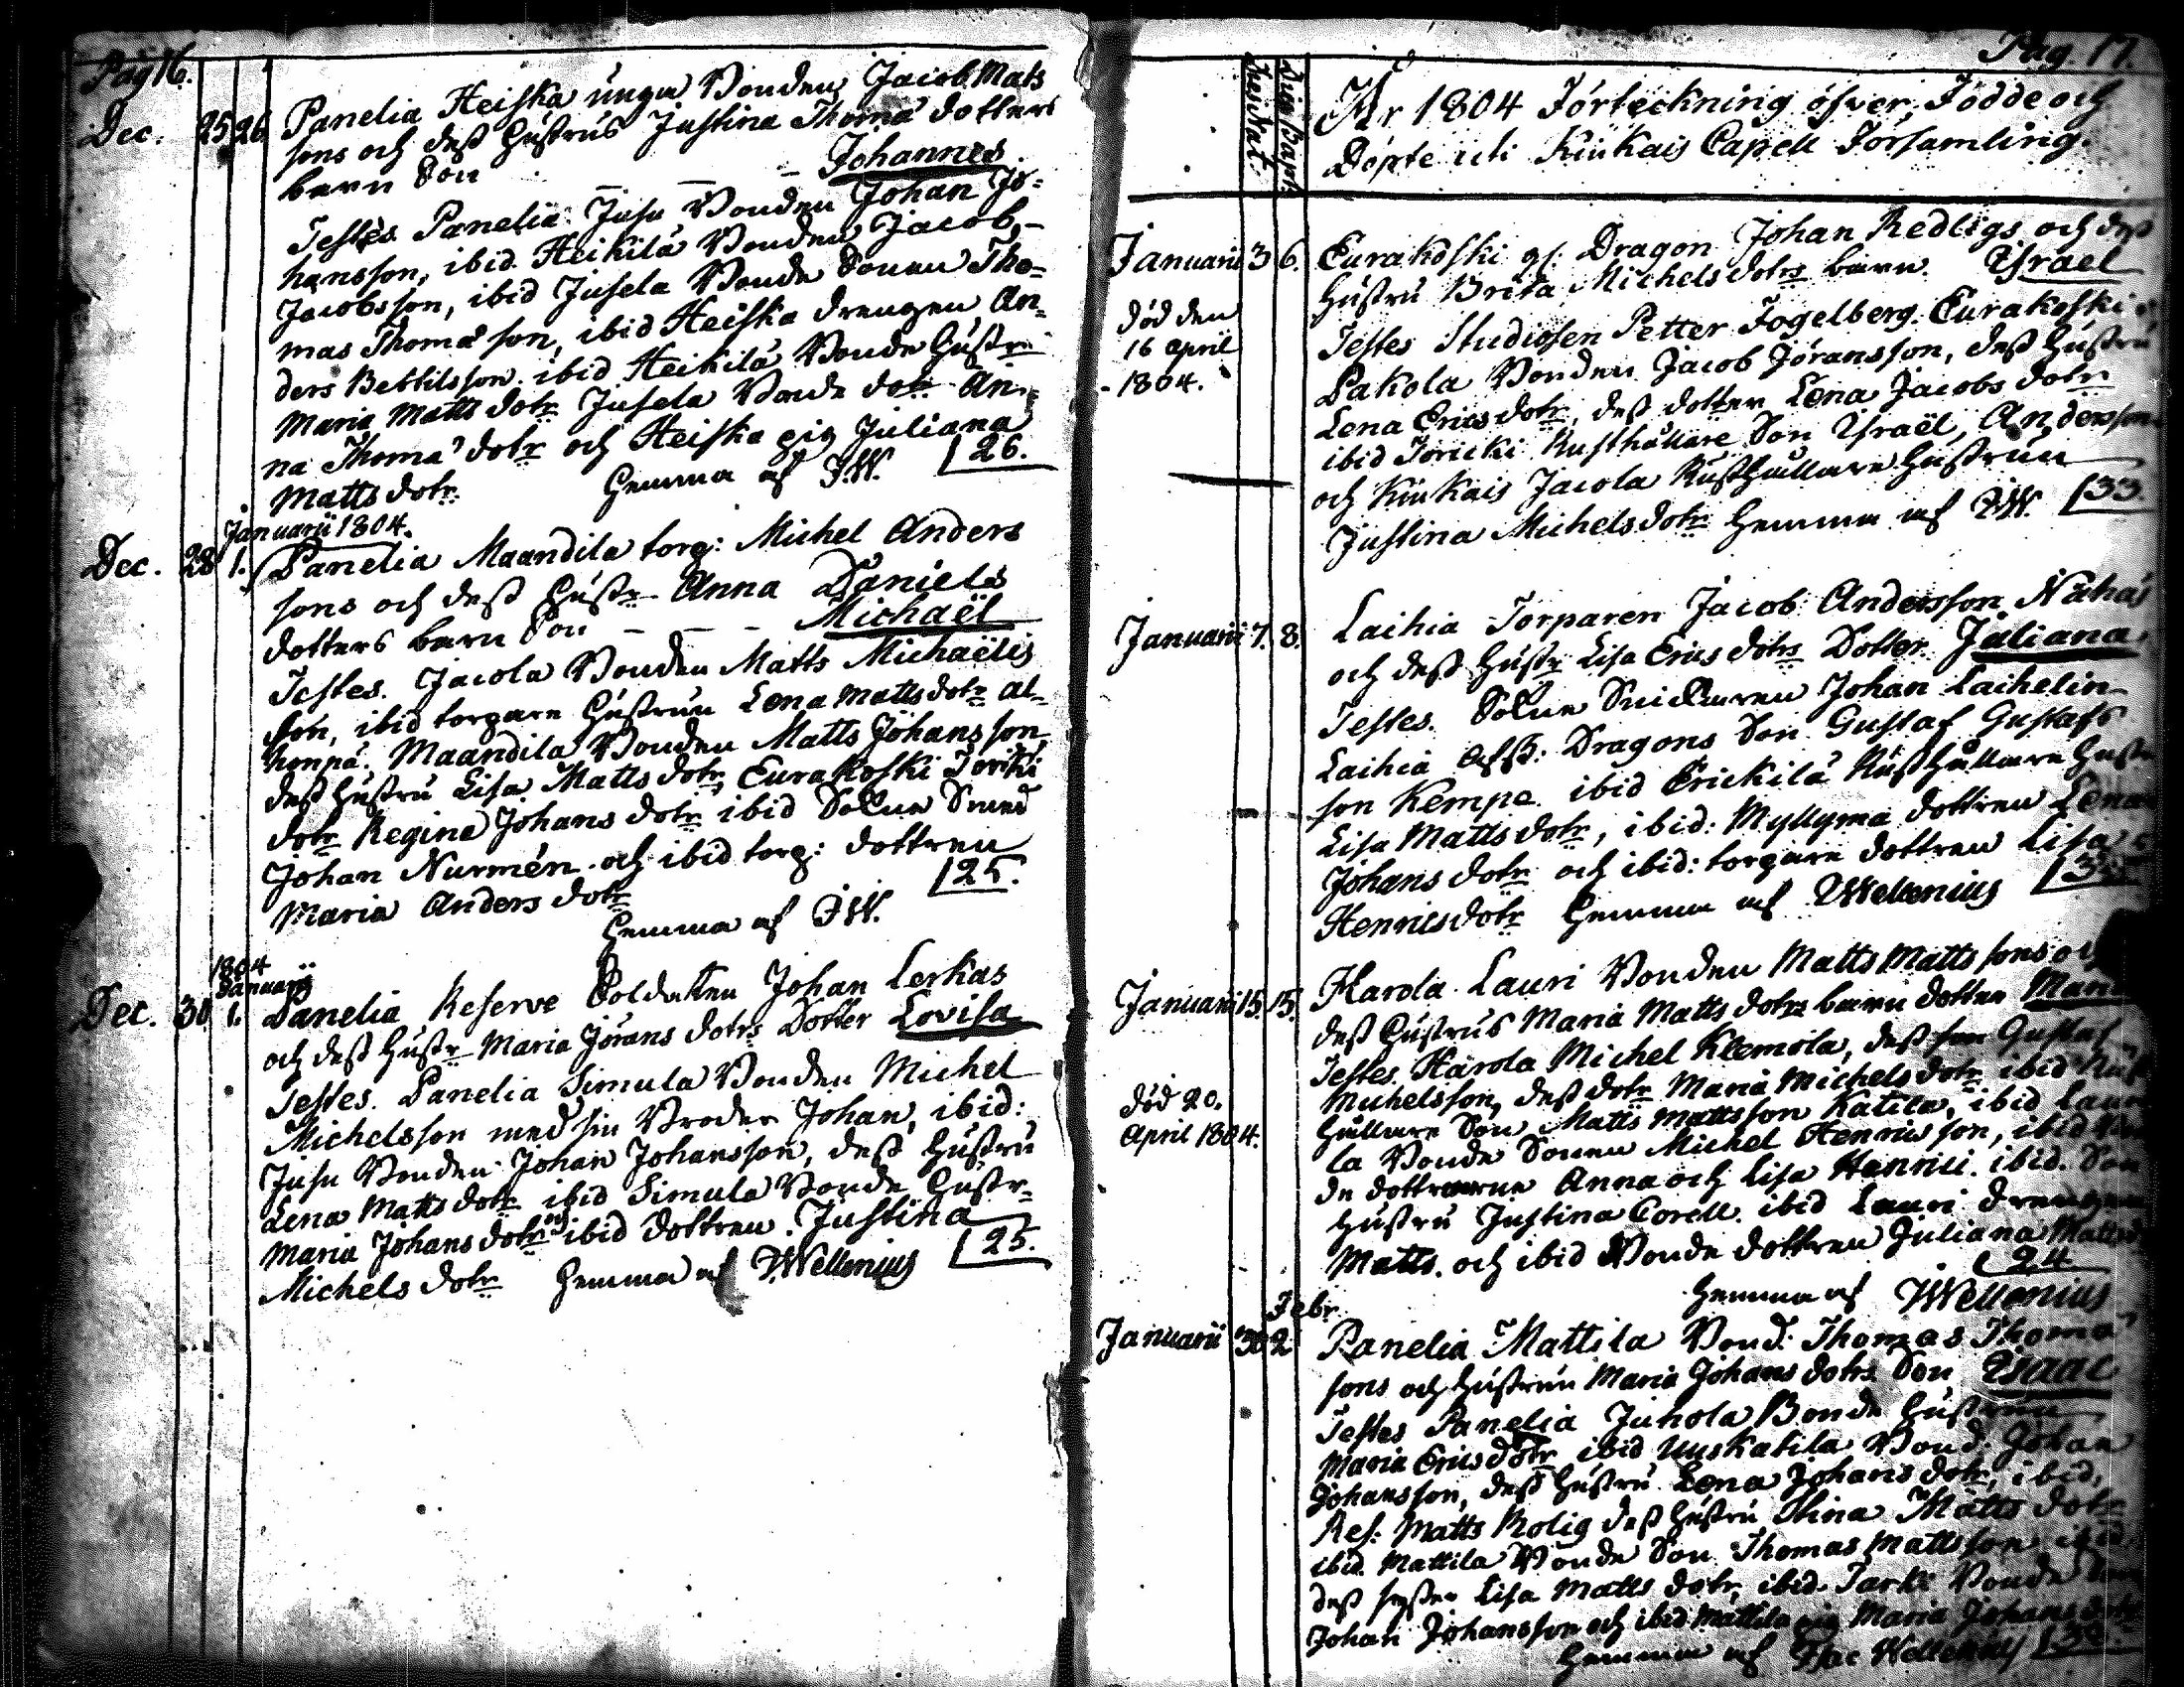 Pag 16.
Dec. 25 26 Panelia Heiska unga Bonden Jacob Mats
sons och dess Hustrus Justina Thomä dotters
barn Son — — — Johannes
Testes Panelia Jusu Bonden Johan Jo-
hansson, ibid Heikilä Bonden Jacob
Jacobsson, ibid Jusela Bonde Sonen Tho-
mas Thomä son, ibid Heiska drengen An-
ders Bettilsson. ibid Heikilä Bonde Hustr
Maria Matts dotr Jusela Bonde dotr An-
na Thomä dotr och Heiska pig Juliana
Matts dotr Hemma af I.W. 26.
Januarii 1804.
Dec. 28 1. Panelia Maandila torp: Michel Anders
sons och dess Hustr Anna Daniels
dotters barn Son — — — Michaël
Testes. Jacola Bonden Matts Michaëlis
son, ibid torpare Hustrun Lena Matts dotr
Maandila Bonden Matts Johansson,
dess Hustru Lisa Matts dotr, Eurakoski
dotr Regina Johans dotr ibid Sokne Smed
Johan Nurmén och ibid torp: dottren
Maria Anders dotr 25.
Hemma af I.W.
1804
Januarij
Dec. 30 1. Panelia Reserve Soldaten Johan Lerkas
och dess Hustr Maria Jörans dotrs Dotter Lovisa
Testes. Panelia Simula Bonden Michel
Michelsson med sin Broder Johan, ibid:
Jusu Bonden Johan Johansson, dess Hustru
Lena Matts dotr ibid Simula Bonde Hustr
Maria Johans dotr ibid dottren Justina
Michels dotr Hemma af IWellenius 25.
Pag. 17.
Åhr 1804 Förteckning öfver Födde och
Döpte uti Kiukais Capell Församling.
Januarii 3 6. Eurakoski gl. Dragon Johan Redligs och dess
Hustru Brita Michels dotrs barn. Israel
död den
16 april
1804.
Testes Studiosen Petter Fogelberg. Eurakoski
Pakola Bonden Jacob Jöransson, dess Hustru
Lena Erics dotr, dess dotter Lena Jacobs dotr
ibid Rusthållare Son Israël Andersson
och Kiukais Jacola Rusthållare Hustrun
Justina Michels dotr Hemma af IW. 33.
Januarii 7. 8. Laihia Torparen Jacob Andersson Nähäs
och dess Hustr Lisa Erics dotrs Dotter Juliana.
Testes. Sokne Snickaren Johan Laihelin
Laihia afsk: Dragons Son Gustaf Gustafs
son Kempe. ibid Erickilä Rusthållare Hustr
Lisa Matts dotr, ibid: Myllymä dottren Lena
Johans dotr och ibid: torpare dottren Lisa
Henrics dotr Hemma af IWellenius
Januarii 15. 15. Harola Lauri Bonden Matts Matts sons och
dess Hustrus Maria Matts dotrs barn dotter
Testes Harola Michel Klemola, dess son Gustaf
Michelsson, dess dotr Maria Michels dotr ibid Rust
död 20.
April 1804.
hållare Son Matts Mattsson Katila, ibid
la Bonde Sonen Michel Henricsson, ibid
de dottrarna Anna och Lisa Henrici. ibid.
Hustru Justina Corell. ibid Lauri drengen
Matts. och ibid Bonde dottren Juliana
24.
Hemma af IWellenius
Febr.
Januarii 30 2 Panelia Mattila Bond: Thomas Thomä
sons och Hustrun Maria Johans dotrs Son Isaac
Testes Panelia Juhola Bonde Hustrun
Maria Erics dotr ibid Uuskatila Bond: Johan
Johansson, dess Hustru Lena Johans dotr, ibid,
Res: Matts Rolig dess Hustru Stina Matts dotr
ibid Mattila Bonde Son Thomas Mattsson ibid
dess syster Lisa Matts dotr ibid Bonde
Johan Johansson och ibid Mattila pig Maria Johans dotr
Hemma af Isac Wellenius